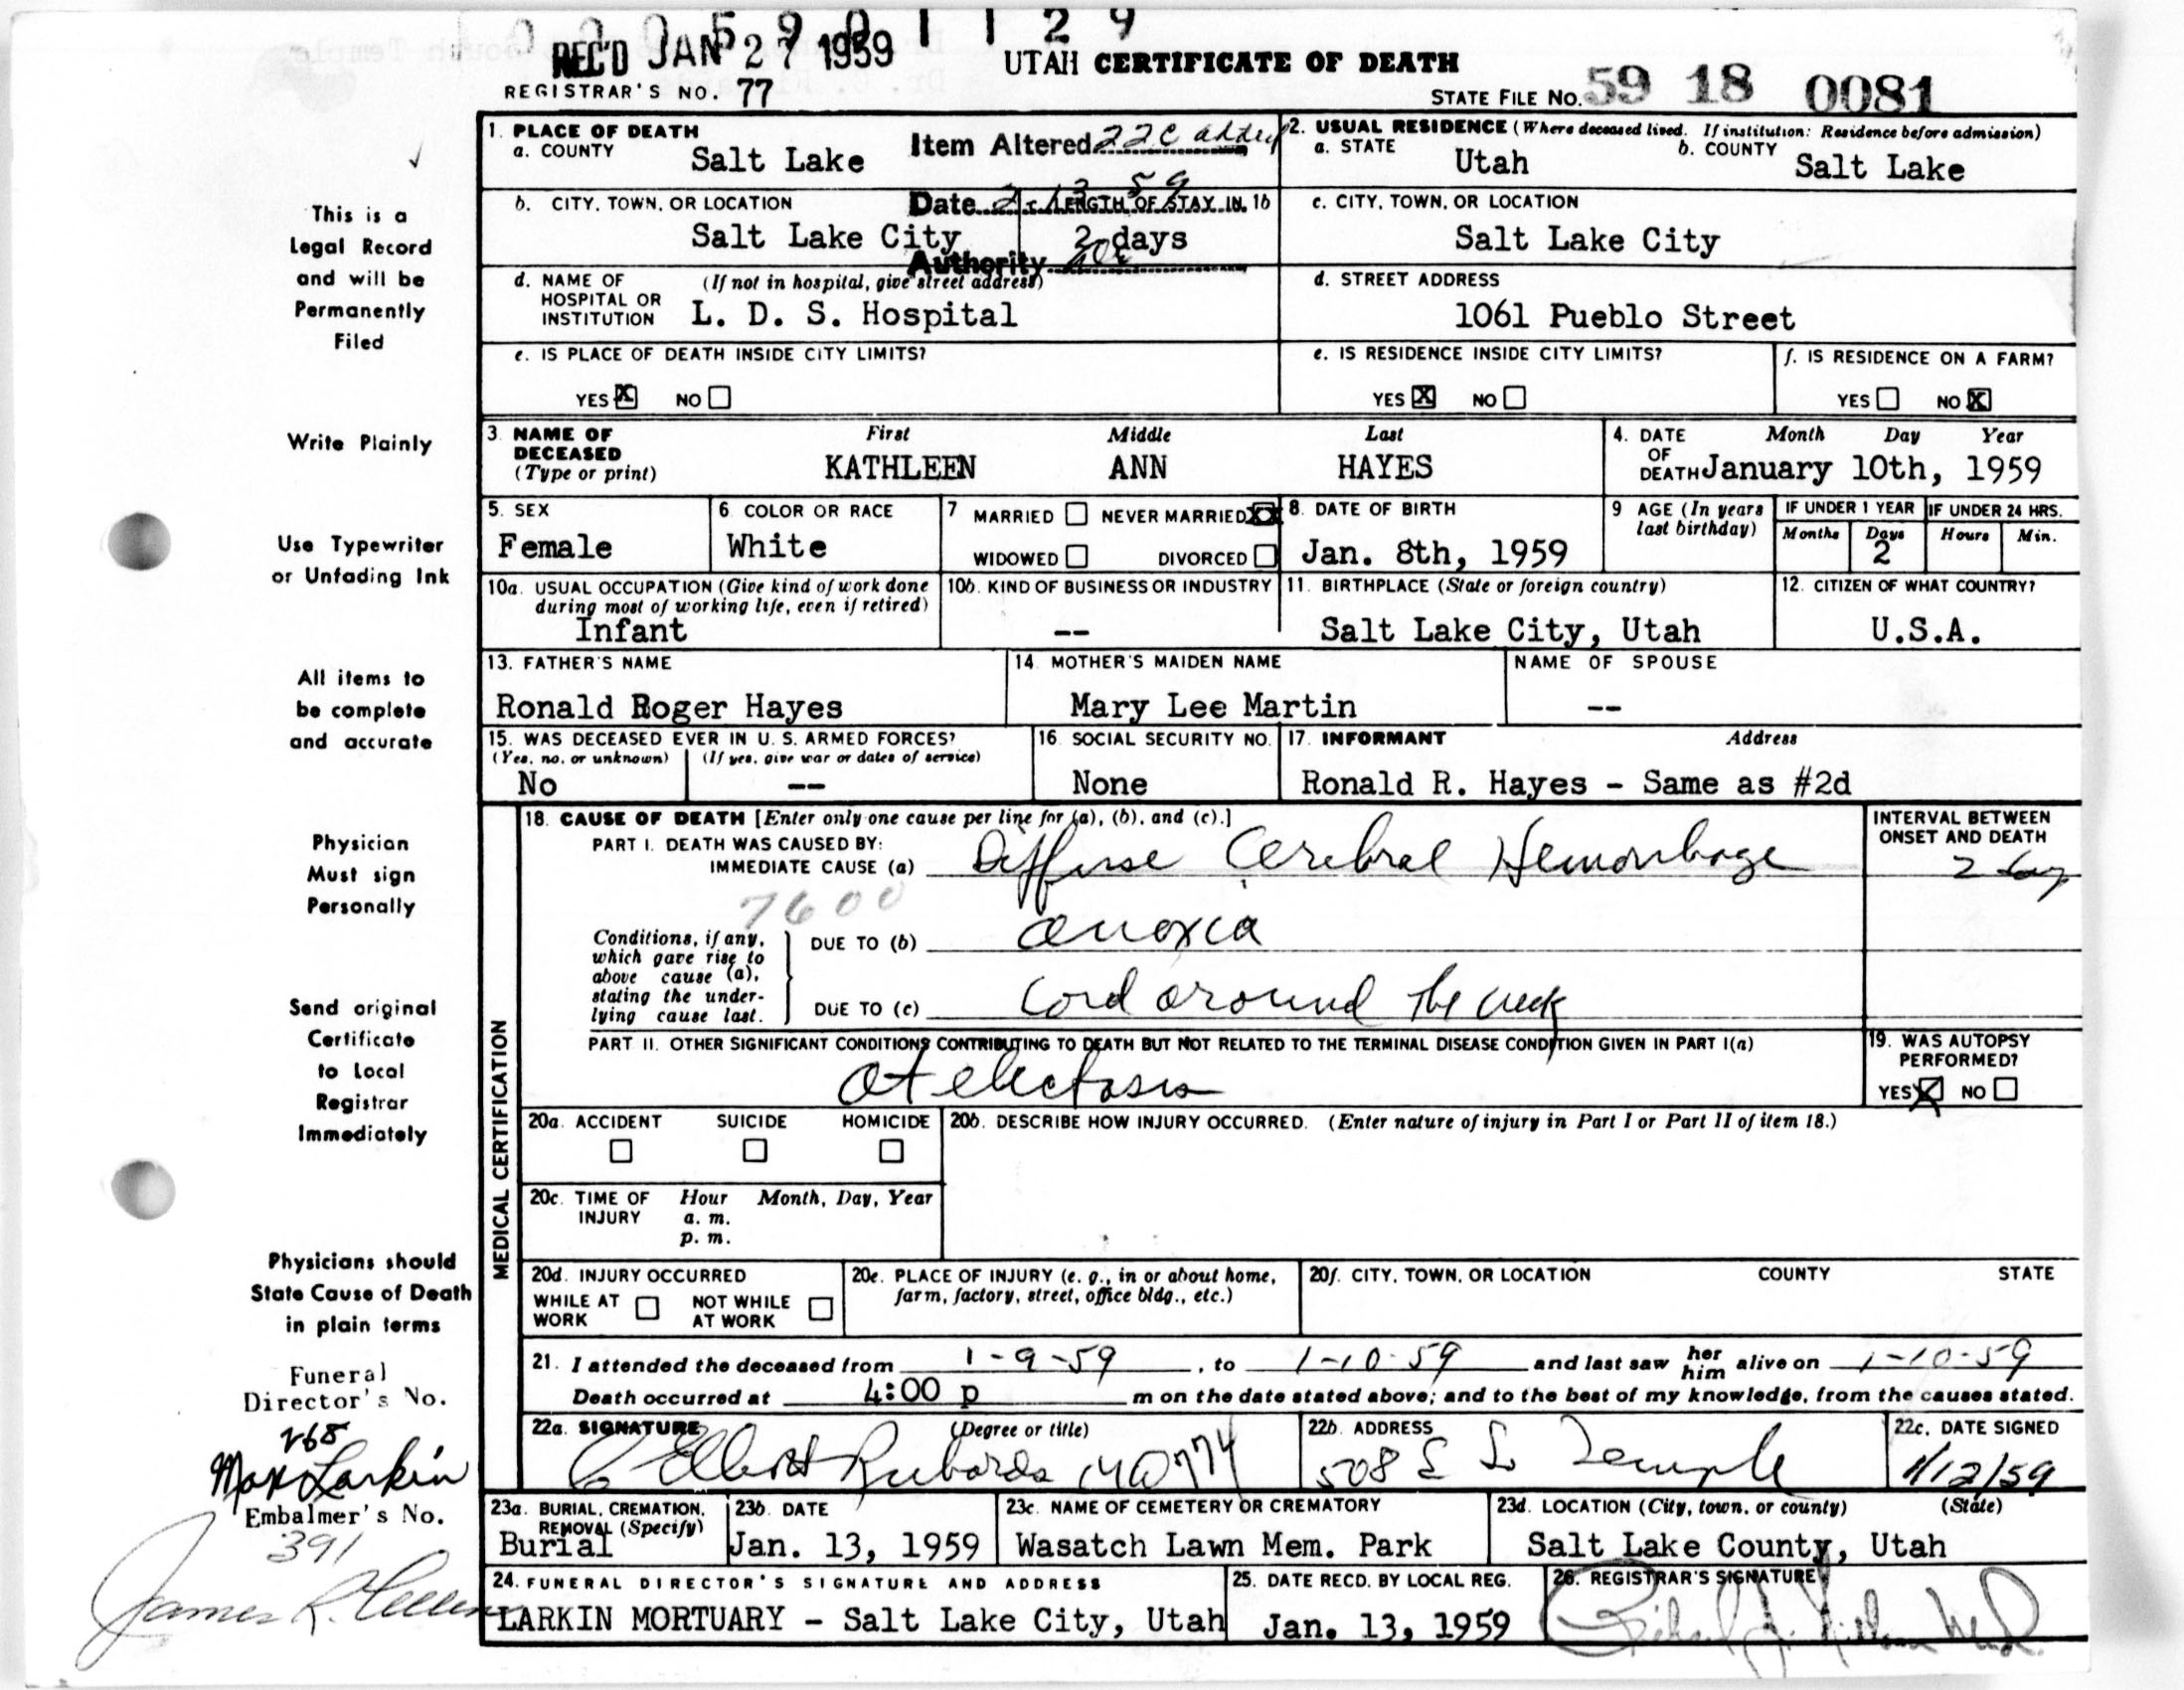 0 2 0 5 9 0 1 1 2 9
REC'D JAN 27 1959
UTAH CERTIFICATE OF DEATH
REGISTRAR'S NO. 77
STATE FILE NO. 59 18 0081
This is a
Legal Record
and will be
Permanently
Filed
Write Plainly
Use Typewriter
or Unfading Ink
All items to
be complete
and accurate
Physician
Must sign
Personally
Send original
Certificate
to Local
Registrar
Immediately
Physicians should
State Cause of Death
in plain terms
Funeral
Director's No.
268
Max Larkin
Embalmer's No.
391
James R.
1. PLACE OF DEATH
a. COUNTY Salt Lake
Item Altered 22c added
Date 2-13-59
Authority
2. USUAL RESIDENCE (Where deceased lived. If institution: Residence before admission)
a. STATE Utah
b. COUNTY Salt Lake
b. CITY, TOWN, OR LOCATION Salt Lake City
c. LENGTH OF STAY IN 1b 2 days
c. CITY, TOWN, OR LOCATION
Salt Lake City
d. NAME OF HOSPITAL OR INSTITUTION (If not in hospital, give street address)
L. D. S. Hospital
d. STREET ADDRESS
1061 Pueblo Street
e. IS PLACE OF DEATH INSIDE CITY LIMITS?
YES X NO
e. IS RESIDENCE INSIDE CITY LIMITS?
YES X NO
f. IS RESIDENCE ON A FARM?
YES NO X
3. NAME OF DECEASED (Type or print)
First Middle Last
KATHLEEN ANN HAYES
4. DATE OF DEATH Month Day Year
January 10th, 1959
5. SEX
Female
6. COLOR OR RACE
White
7 MARRIED NEVER MARRIED XX
WIDOWED DIVORCED
8. DATE OF BIRTH
Jan. 8th, 1959
9 AGE (In years last birthday)
IF UNDER 1 YEAR IF UNDER 24 HRS.
Months Days Hours Min.
2
10a. USUAL OCCUPATION (Give kind of work done during most of working life, even if retired)
Infant
10b. KIND OF BUSINESS OR INDUSTRY
--
11. BIRTHPLACE (State or foreign country)
Salt Lake City, Utah
12. CITIZEN OF WHAT COUNTRY?
U.S.A.
13. FATHER'S NAME
Ronald Roger Hayes
14. MOTHER'S MAIDEN NAME
Mary Lee Martin
NAME OF SPOUSE
--
15. WAS DECEASED EVER IN U. S. ARMED FORCES?
(Yes, no, or unknown) (If yes, give war or dates of service)
No --
16. SOCIAL SECURITY NO.
None
17. INFORMANT Address
Ronald R. Hayes - Same as #2d
MEDICAL CERTIFICATION
18. CAUSE OF DEATH [Enter only one cause per line for (a), (b), and (c).]
PART I. DEATH WAS CAUSED BY:
IMMEDIATE CAUSE (a) Diffuse Cerebral Hemorrhage
INTERVAL BETWEEN ONSET AND DEATH
2 day
7600
Conditions, if any, which gave rise to above cause (a), stating the underlying cause last.
DUE TO (b) anoxia
DUE TO (c) Cord around the neck
PART II. OTHER SIGNIFICANT CONDITIONS CONTRIBUTING TO DEATH BUT NOT RELATED TO THE TERMINAL DISEASE CONDITION GIVEN IN PART I(a)
atelectasis
19. WAS AUTOPSY PERFORMED?
YES X NO
20a. ACCIDENT SUICIDE HOMICIDE
20b. DESCRIBE HOW INJURY OCCURRED. (Enter nature of injury in Part I or Part II of item 18.)
20c. TIME OF INJURY Hour Month, Day, Year
a. m.
p. m.
20d. INJURY OCCURRED
WHILE AT WORK NOT WHILE AT WORK
20e. PLACE OF INJURY (e. g., in or about home, farm, factory, street, office bldg., etc.)
20f. CITY, TOWN, OR LOCATION COUNTY STATE
21. I attended the deceased from 1-9-59, to 1-10-59 and last saw her him alive on 1-10-59
Death occurred at 4:00 p m on the date stated above; and to the best of my knowledge, from the causes stated.
22a. SIGNATURE (Degree or title)
C Elliott Richards MD
22b. ADDRESS
508 E So Temple
22c. DATE SIGNED
1/12/59
23a. BURIAL, CREMATION, REMOVAL (Specify)
Burial
23b. DATE
Jan. 13, 1959
23c. NAME OF CEMETERY OR CREMATORY
Wasatch Lawn Mem. Park
23d. LOCATION (City, town, or county) (State)
Salt Lake County, Utah
24. FUNERAL DIRECTOR'S SIGNATURE AND ADDRESS
LARKIN MORTUARY - Salt Lake City, Utah
25. DATE RECD. BY LOCAL REG.
Jan. 13, 1959
26. REGISTRAR'S SIGNATURE